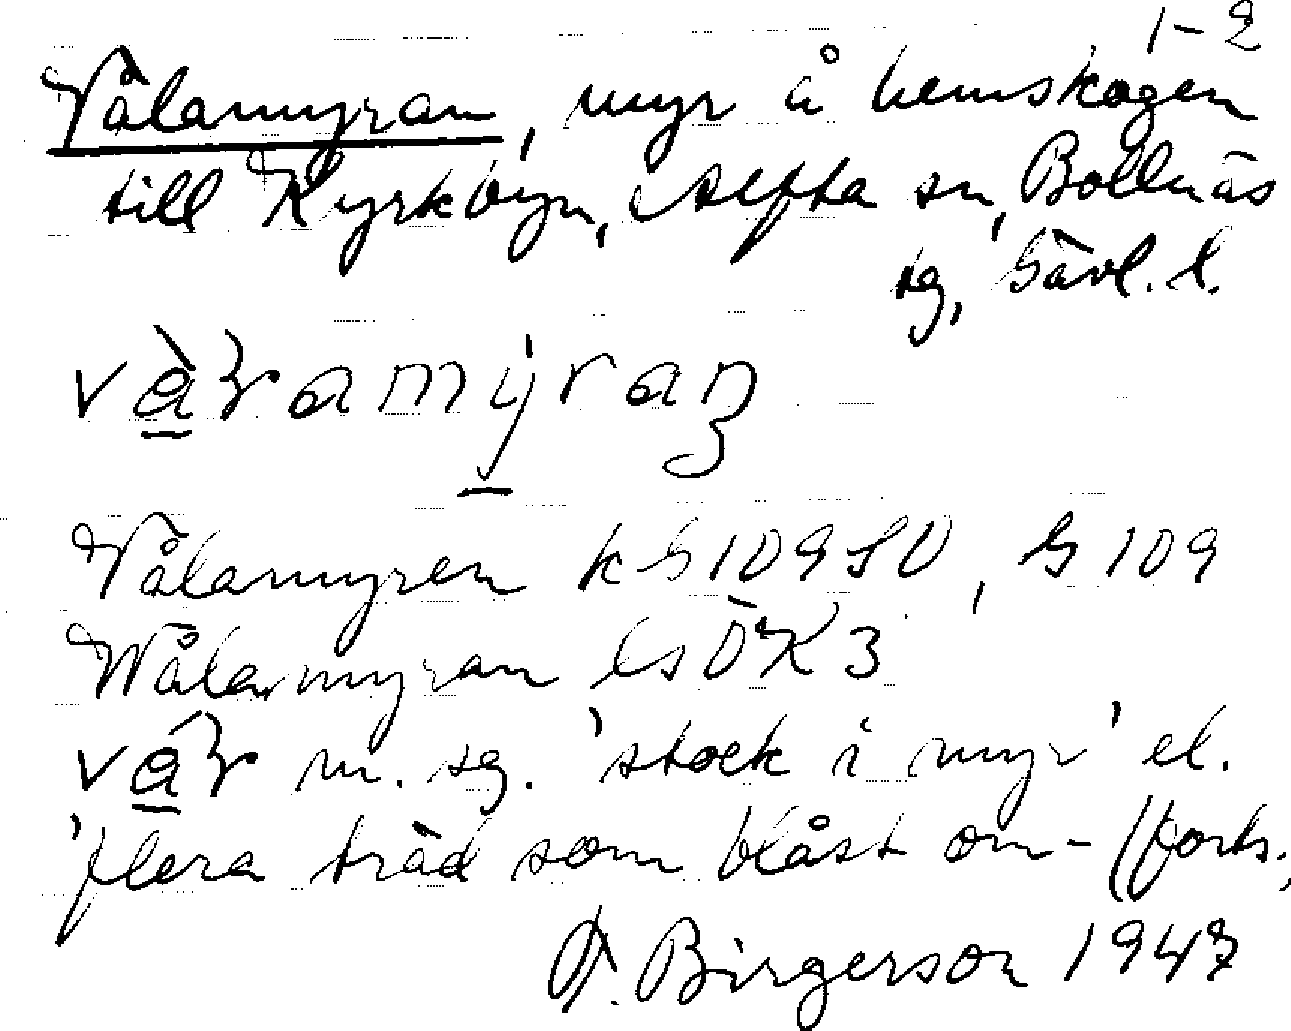 1-2
Vålamyran, myr å hemskogen
till Kyrkbyn, Alfta sn, Bollnäs
sg, Gävl. l.
Vålamyren kG109SV, G109
Wålamyran lsÖK3
m. sg. 'stock i myr' el.
'flera träd som blåst om- (forts.,
A. Birgerson 1947